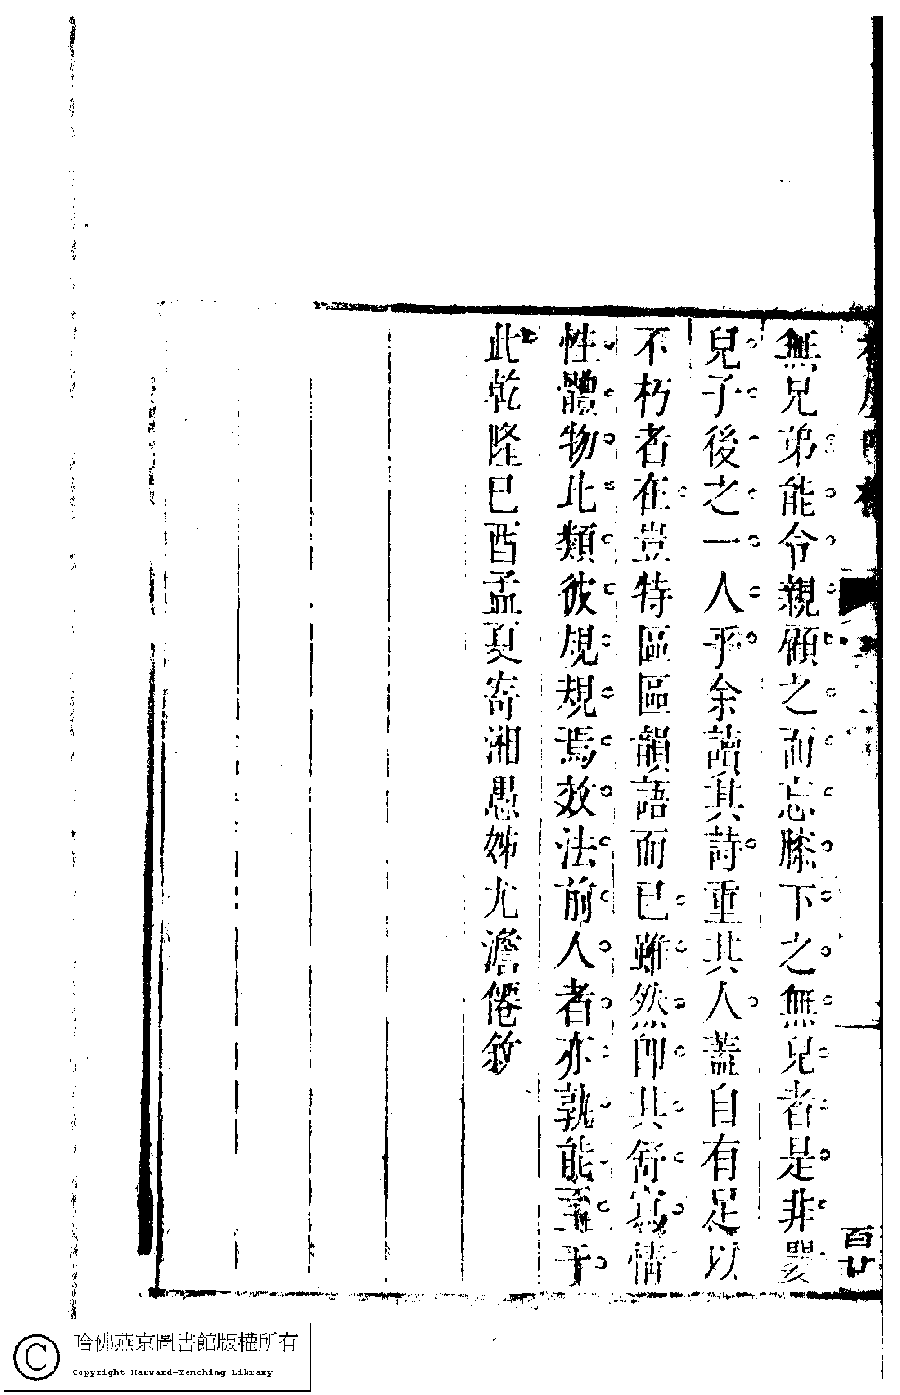 無兄弟能令親顧之而忘膝下之無兒者是非
兒子後之一人乎余讀其詩重其人蓋自有足以
不朽者在豈特區區韻語而已雖然即其舒寫情
性體物比類彼規規焉效法前人者亦孰能至于
此乾隆巳酉孟夏寄湘愚姊尤澹僊敘
百廿
哈佛燕京圖書館版權所有
Copyright Harvard-Yenching Library